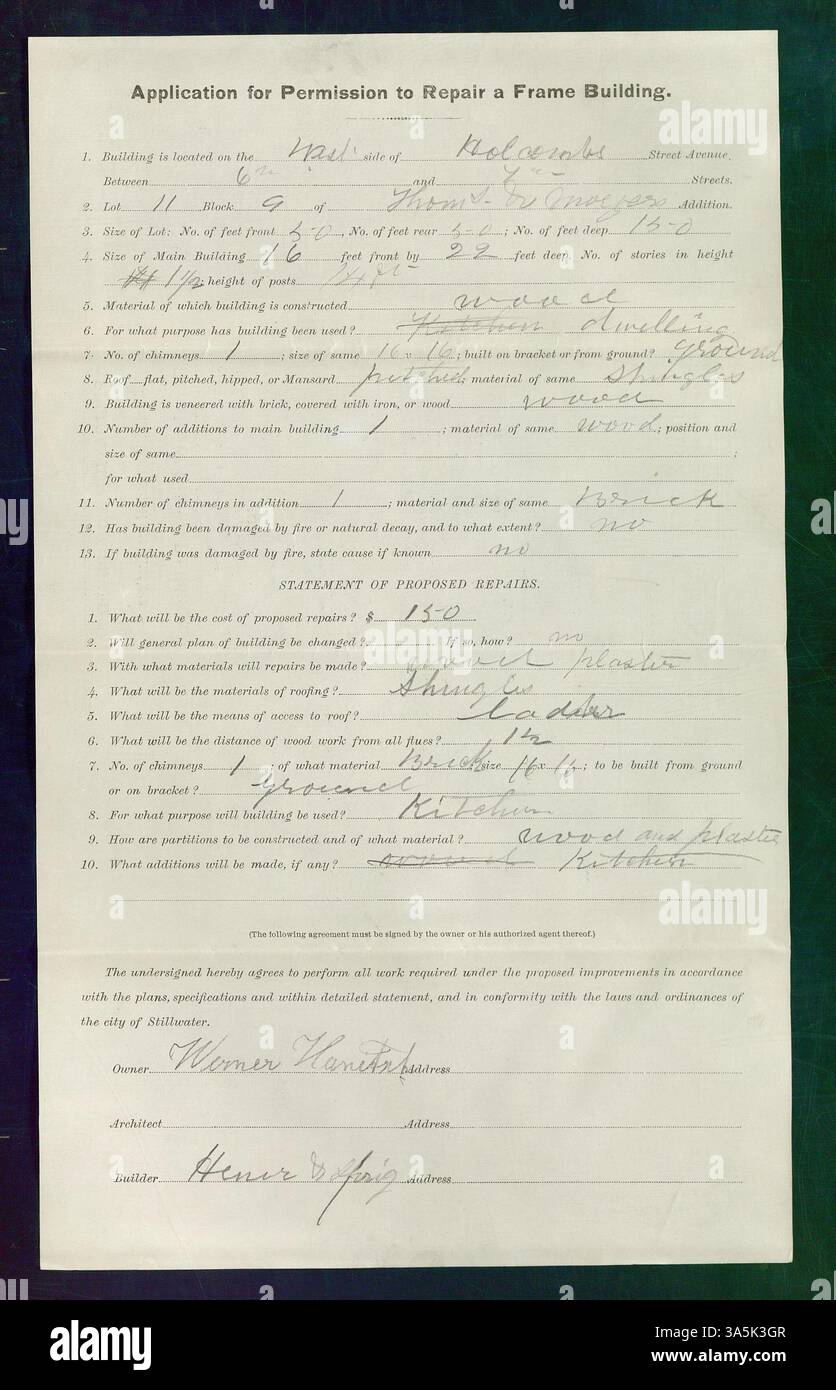 Application for Permission to Repair a Frame Building.
1. Building is located on the West side of Holcombe Street Avenue.
Between 6th and 7th Streets.
2. Lot 11 Block 9 of Addition.
3. Size of Lot: No. of feet front 50, No. of feet rear 50; No. of feet deep 150
4. Size of Main Building 16 feet front by 22 feet deep. No. of stories in height
1 1/2; height of posts 14 ft
5. Material of which building is constructed wood
6. For what purpose has building been used? Kitchen dwelling
7. No. of chimneys 1; size of same 16 x 16; built on bracket or from ground? ground
8. Roof—flat, pitched, hipped, or Mansard pitched; material of same Shingles
9. Building is veneered with brick, covered with iron, or wood wood
10. Number of additions to main building 1; material of same wood; position and
size of same ;
for what used
11. Number of chimneys in addition 1; material and size of same Brick
12. Has building been damaged by fire or natural decay, and to what extent? no
13. If building was damaged by fire, state cause if known no
STATEMENT OF PROPOSED REPAIRS.
1. What will be the cost of proposed repairs? $ 150
2. Will general plan of building be changed? If so, how? no
3. With what materials will repairs be made? wood plaster
4. What will be the materials of roofing? Shingles
5. What will be the means of access to roof? ladder
6. What will be the distance of wood work from all flues? 1 1/2
7. No. of chimneys 1; of what material Brick; size 16 x 16; to be built from ground
or on bracket? ground
8. For what purpose will building be used? Kitchen
9. How are partitions to be constructed and of what material? wood and plaster
10. What additions will be made, if any? Kitchen
(The following agreement must be signed by the owner or his authorized agent thereof.)
The undersigned hereby agrees to perform all work required under the proposed improvements in accordance
with the plans, specifications and within detailed statement, and in conformity with the laws and ordinances of
the city of Stillwater.
Owner Werner Address
Architect Address
Builder Address
alamy
Image ID: 3A5K3GR
www.alamy.com